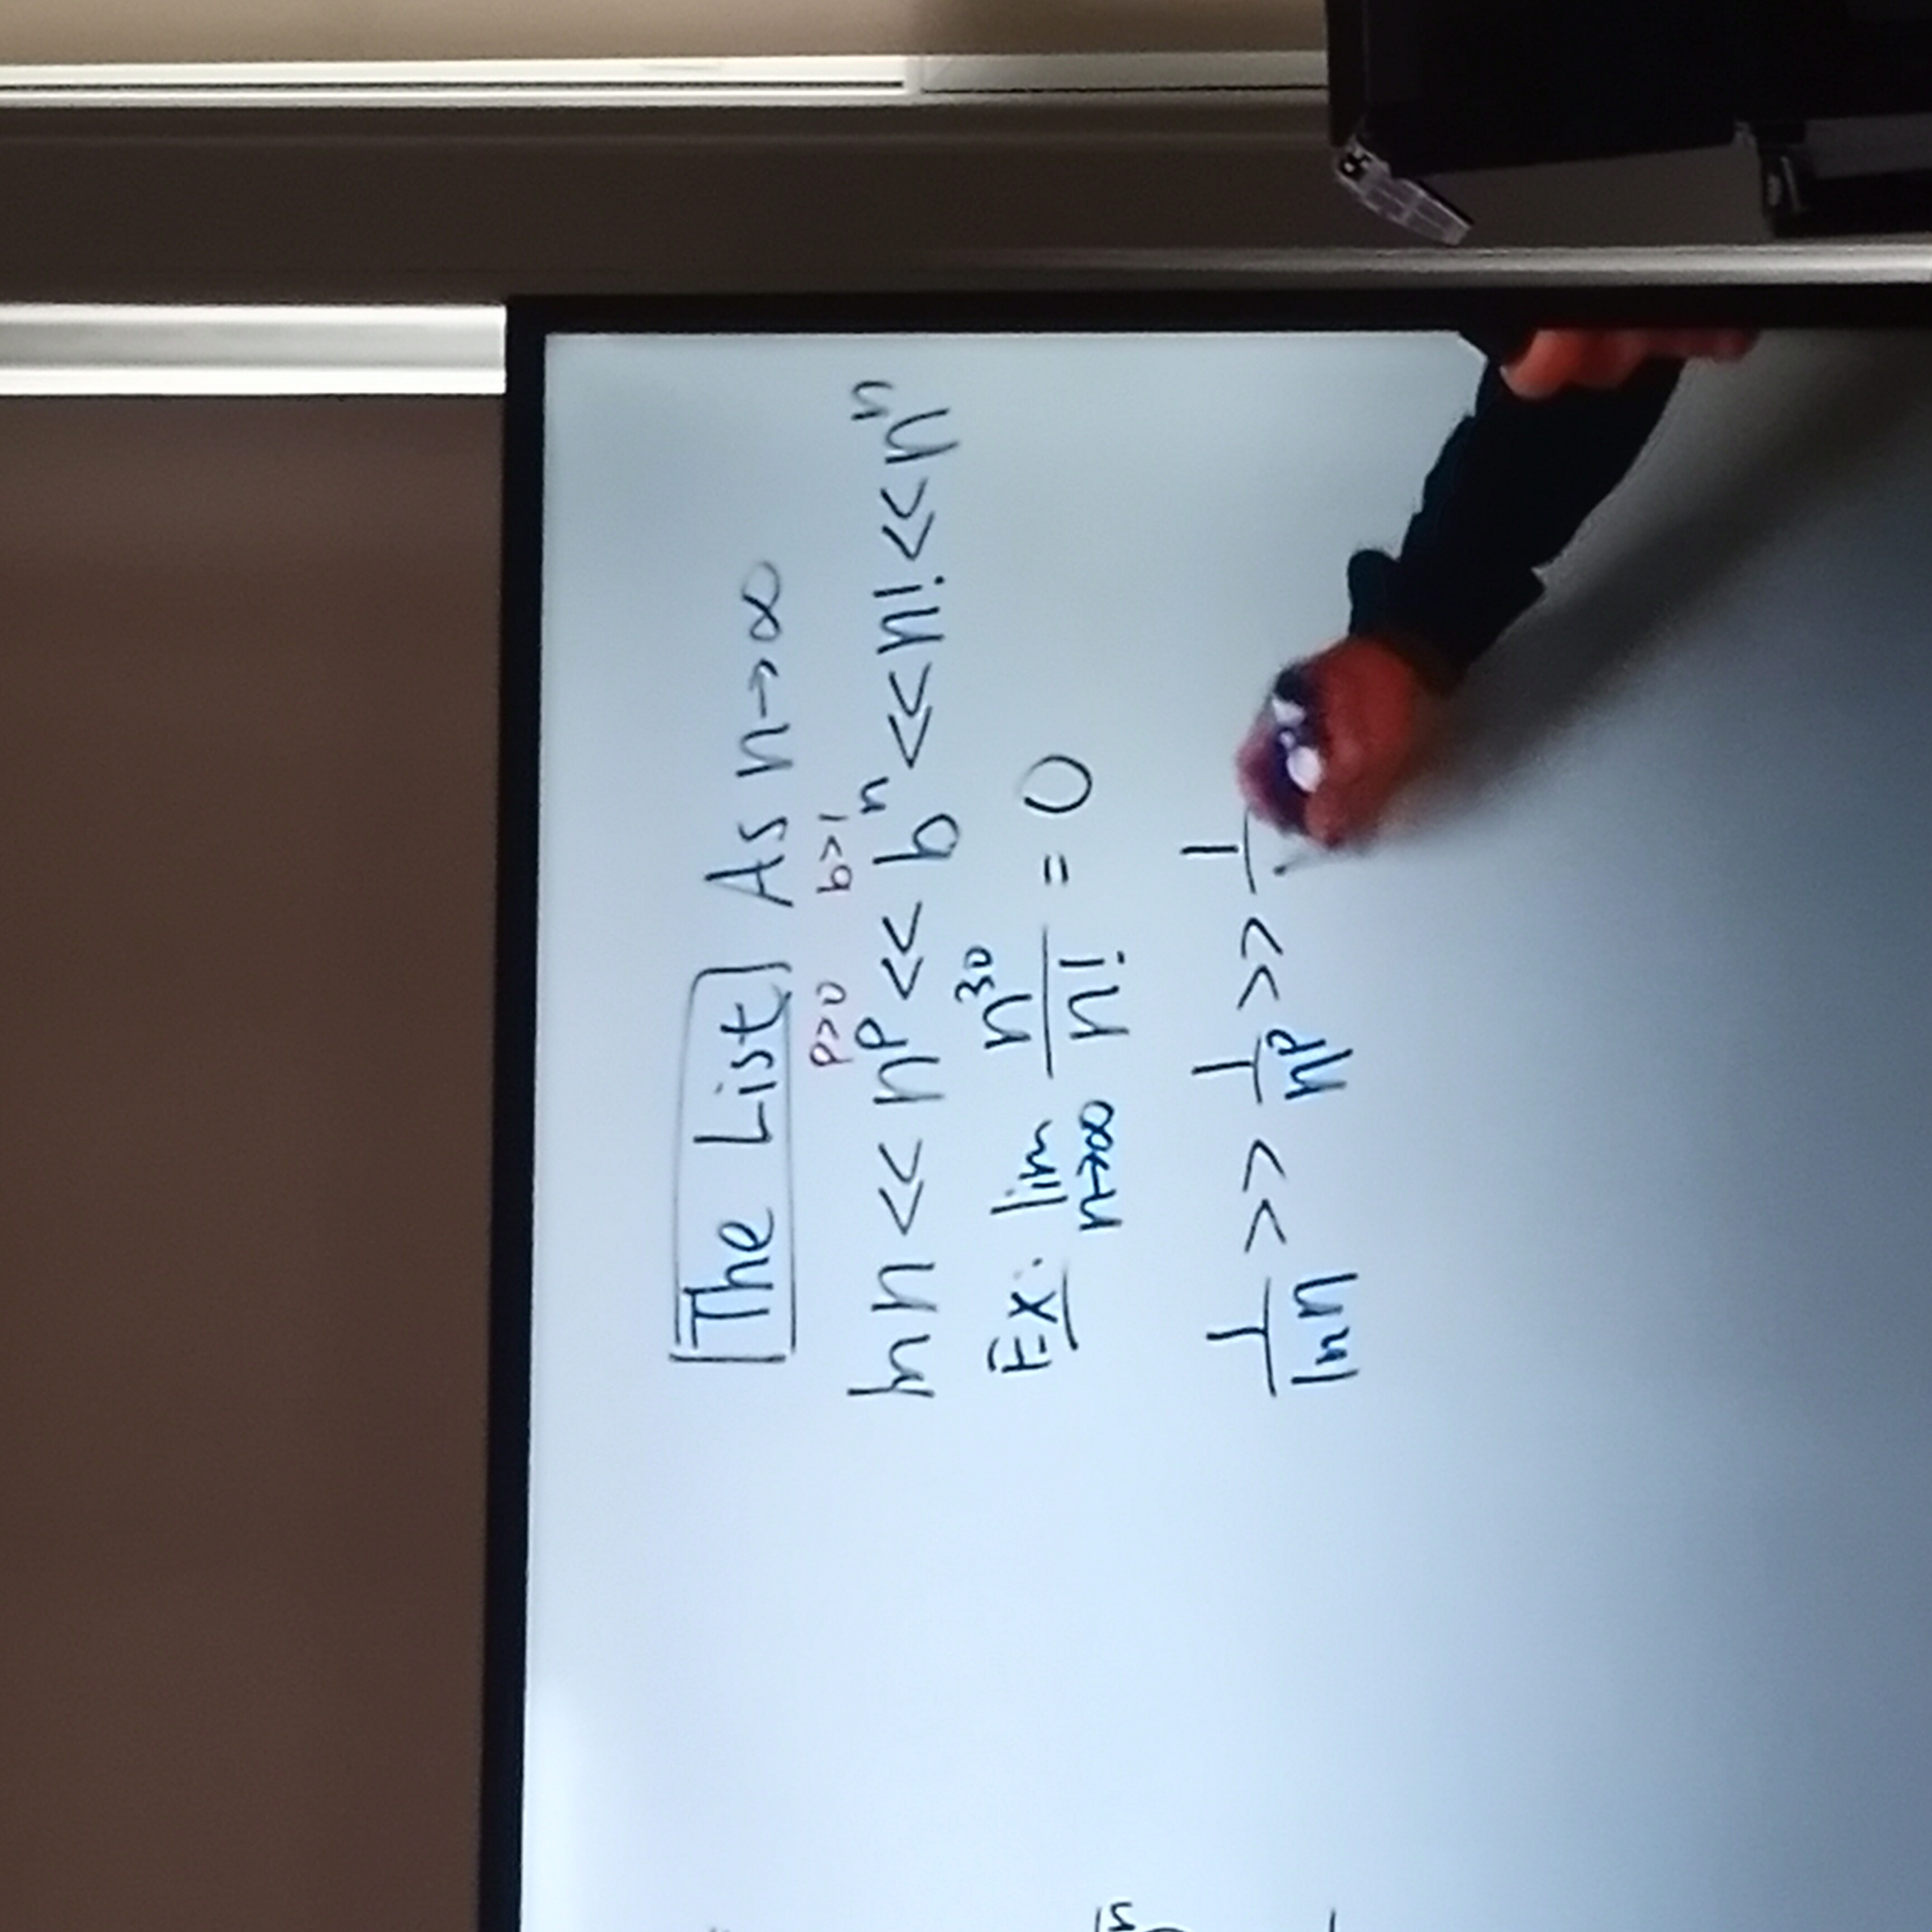 The List As n→∞
p>0 b>1
ln n << n^p << b^n << n! << n^n
Ex: lim n→∞ n^30/n! = 0
1/ln n >> 1/n^p >> 1/